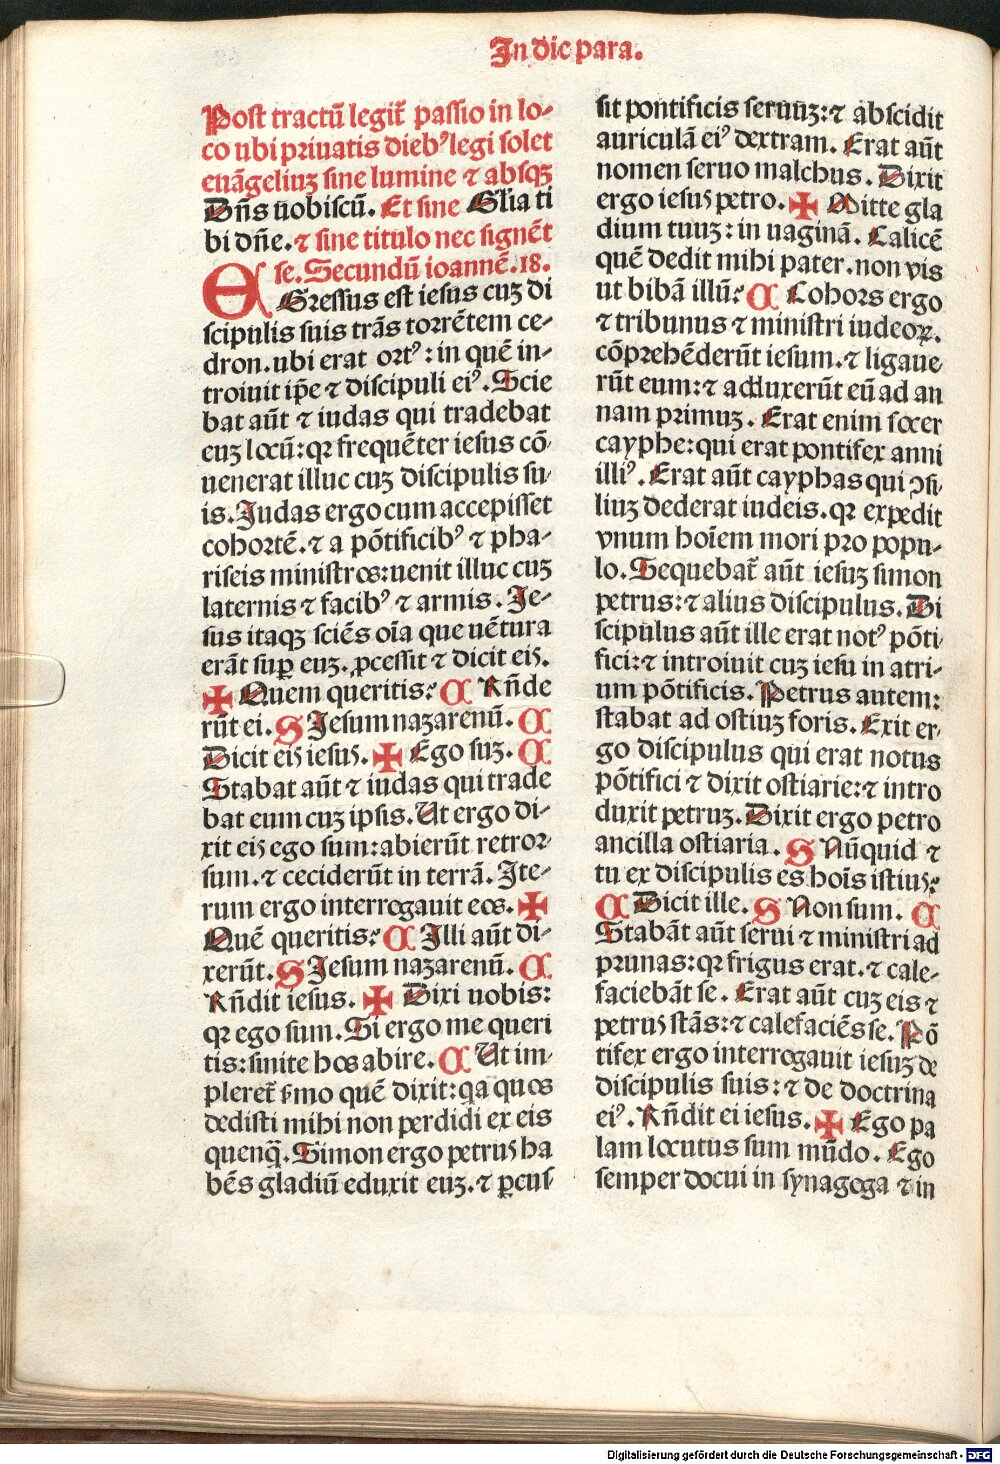 In die para.
Post tractũ legit̃ passio in lo-
co ubi priuatis dieb⁹ legi solet
euãgeliuʒ sine lumine ⁊ absqꝫ
Dñs uobiscũ. Et sine Glia ti
bi dñe. ⁊ sine titulo nec signẽt
se. Secundũ ioannẽ. 18.
EGressus est iesus cuʒ di
scipulis suis trãs torrẽtem ce-
dron. ubi erat ort⁹: in quẽ in-
troiuit ip̃e ⁊ discipuli ei⁹. Scie
bat aũt ⁊ iudas qui tradebat
euʒ locũ: qꝛ frequẽter iesus cõ
uenerat illuc cuʒ discipulis su-
is. Judas ergo cum accepisset
cohortẽ. ⁊ a põtificib⁹ ⁊ pha-
riseis ministros: uenit illuc cuʒ
laternis ⁊ facib⁹ ⁊ armis. Je-
sus itaqꝫ sciẽs oĩa que uẽtura
erãt suꝑ euʒ. ꝓcessit ⁊ dicit eis.
✠ Quem queritis? C Rñde
rũt ei. S Jesum nazarenũ. C
Dicit eis iesus. ✠ Ego suʒ. C
Stabat aũt ⁊ iudas qui trade
bat eum cuʒ ipsis. Ut ergo di-
xit eis ego sum: abierũt retror-
sum. ⁊ ceciderũt in terrã. Ite-
rum ergo interrogauit eos. ✠
Quẽ queritis? C Illi aũt di-
xerũt. S Jesum nazarenũ. C
Rñdit iesus. ✠ Dixi uobis:
qꝛ ego sum. Si ergo me queri
tis: sinite hos abire. C Ut im-
pleret̃ s̃mo quẽ dixit: qa quos
dedisti mihi non perdidi ex eis
quenq̃. Simon ergo petrus ha
bẽs gladiũ eduxit euʒ. ⁊ ꝑcus
sit pontificis seruuʒ: ⁊ abscidit
auriculã ei⁹ dextram. Erat aũt
nomen seruo malchus. Dixit
ergo iesus petro. ✠ Mitte gla
dium tuuʒ: in uaginã. Calicẽ
quẽ dedit mihi pater. non vis
ut bibã illũ? C Cohors ergo
⁊ tribunus ⁊ ministri iudeoꝝ.
cõprehẽderũt iesum. ⁊ ligaue
rũt eum: ⁊ adduxerũt eũ ad an
nam primuʒ. Erat enim socer
cayphe: qui erat pontifex anni
illi⁹. Erat aũt cayphas qui ꝯsi-
liuʒ dederat iudeis. qꝛ expedit
vnum hoĩem mori pro popu-
lo. Sequebat̃ aũt iesuʒ simon
petrus: ⁊ alius discipulus. Di
scipulus aũt ille erat not⁹ põti-
fici: ⁊ introiuit cuʒ iesu in atri-
um põtificis. Petrus autem:
stabat ad ostiuʒ foris. Exit er-
go discipulus qui erat notus
põtifici ⁊ dixit ostiarie: ⁊ intro
duxit petruʒ. Dixit ergo petro
ancilla ostiaria. S Nũquid ⁊
tu ex discipulis es hoĩs istius?
C Dicit ille. S Non sum. C
Stabãt aũt serui ⁊ ministri ad
prunas: qꝛ frigus erat. ⁊ cale-
faciebãt se. Erat aũt cuʒ eis ⁊
petrus stãs: ⁊ calefaciẽs se. Põ
tifex ergo interrogauit iesuʒ de
discipulis suis: ⁊ de doctrina
ei⁹. Rñdit ei iesus. ✠ Ego pa
lam locutus sum mũdo. Ego
semper docui in synagoga ⁊ in
Digitalisierung gefördert durch die Deutsche Forschungsgemeinschaft - DFG